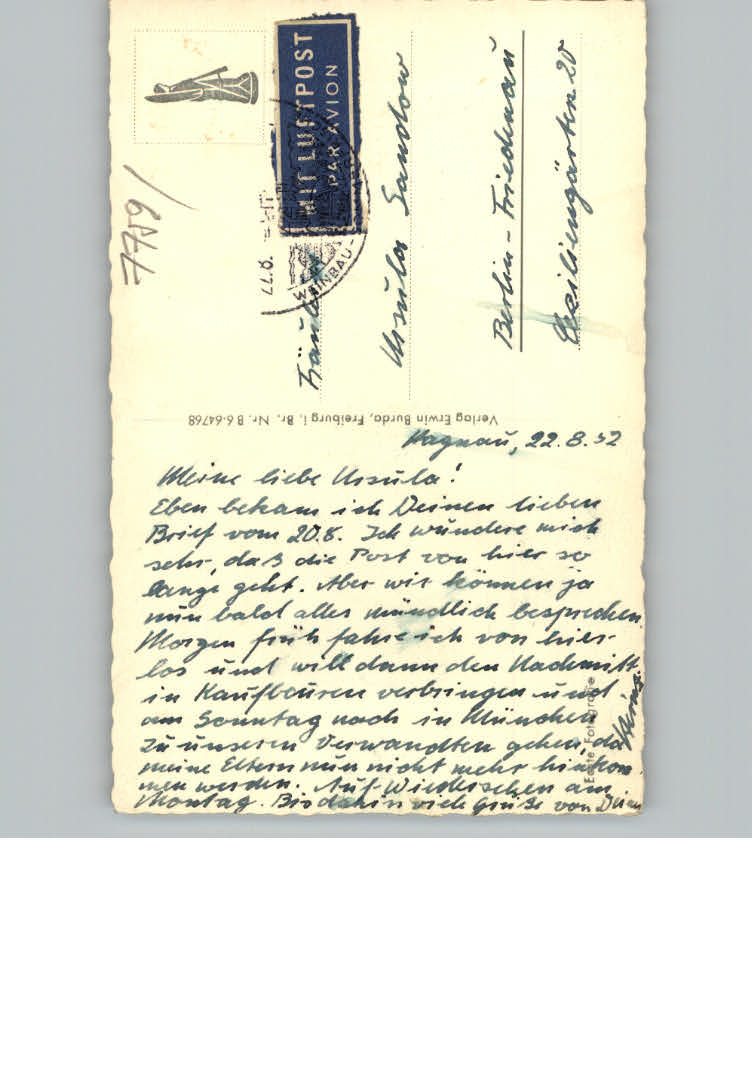 7759/
MIT LUFTPOST
PAR AVION
22.8.
WEINBAU-
Fräulein
Ursula Sandow
Berlin-Friedenau
Cäciliengärten 20
Verlag Erwin Burda, Freiburg i. Br. Nr. B 6-64768
Hagnau, 22.8.52
Meine liebe Ursula!
Eben bekam ich Deinen lieben
Brief vom 20.8. Ich wundere mich
sehr, daß die Post von hier so
lange geht. Aber wir können ja
nun bald alles mündlich besprechen.
Morgen früh fahre ich von hier
los und will dann den Nachmitt.
in Kaufbeuren verbringen und
am Sonntag noch in München
zu unseren Verwandten gehen, da
meine Eltern nun nicht mehr hinkom-
men werden. Auf Wiedersehen am
Montag. Bis dahin viele Grüße von Deinem
Heinz
Echte Fotografie